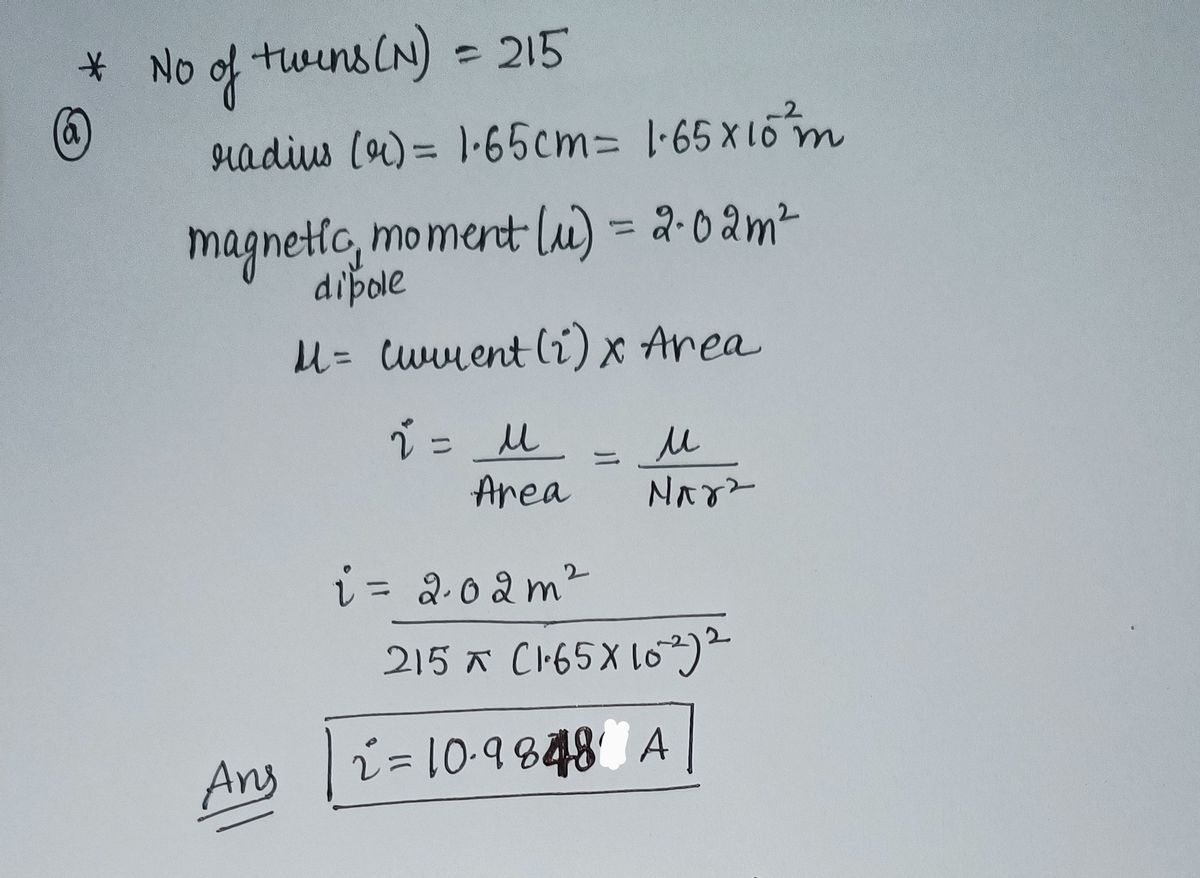 * No of turns (N) = 215
(a)
radius (r) = 1.65cm = 1.65 x 10⁻² m
magnetic, moment (μ) = 2.02m²
dipole
μ = current (i) x Area
i = μ / Area = μ / Nπr²
i = 2.02 m²
215 π (1.65 X 10⁻²)²
Ans i = 10.9848 A